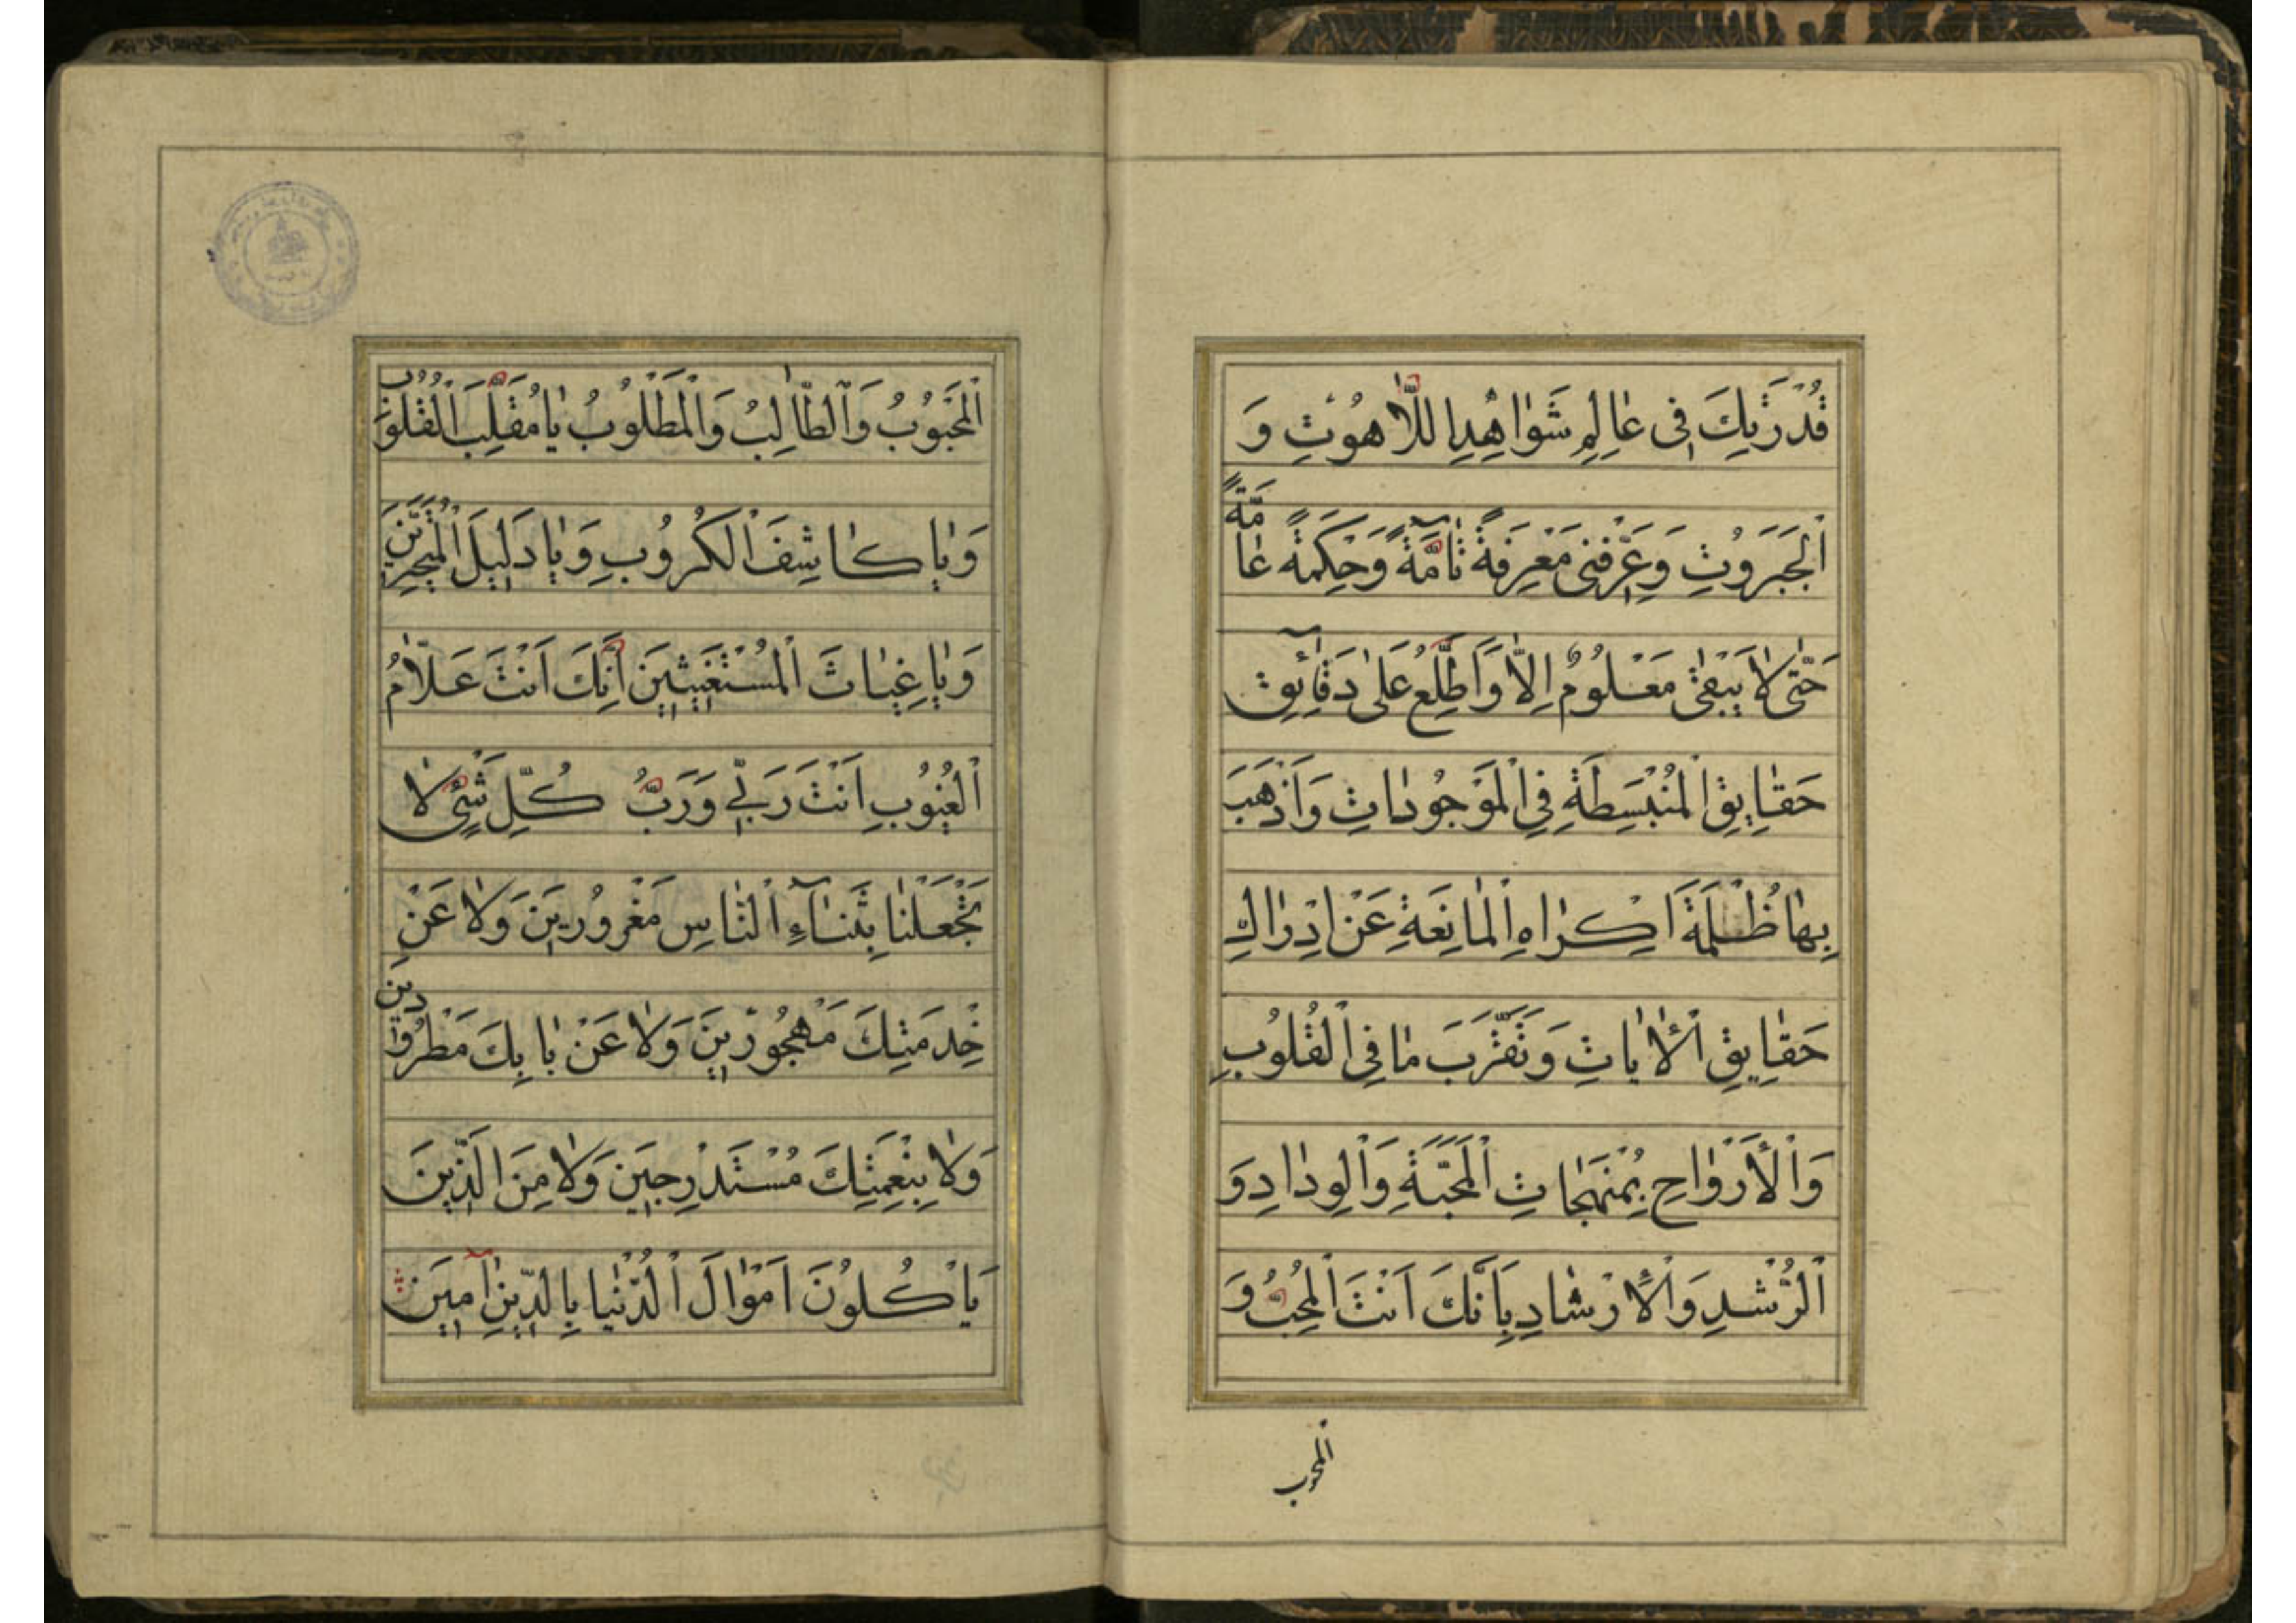 قُدْرَتِكَ فِى عٰالَمِ شَوٰاهِدِ اللّٰاهُوتِ وَ
اَلْجَبَرُوتِ وَعَرِّفْنى مَعْرِفَةً تٰآمَّةً وَحِكَمَةً عٰامَّةً
حَتّٰى لٰا يَبْقٰى مَعْلُومٌ اِلّٰا وَاَطَّلِعُ عَلٰى دَقٰائِقِ
حَقٰايِقِ الْمُنْبَسِطَةِ فِى الْمَوْجُودٰاتِ وَاَذْهَبَ
بِهٰا ظُلْمَةَ اَكِرٰاهِ الْمٰانِعَةِ عَنْ اِدْرٰاكِ
حَقٰايِقِ الْاٰيٰاتِ وَتَقَرَّبَ مٰا فِى الْقُلُوبِ
وَالْاَرْوٰاحِ بِمُنْهَجٰاتِ الْمَحَبَّةِ وَالْوِدٰادِ وَ
الرُّشْدِ وَالْاِرْشٰادِ بِاَنَّكَ اَنْتَ الْمُحِبُّ وَ
المحبوب
اَلْمَحْبُوبُ وَالطّٰالِبُ وَالْمَطْلُوبُ يٰا مُقَلِّبَ الْقُلُوبِ
وَيٰا كٰاشِفَ الْكُرُوبِ وَيٰا دَلِيلَ الْمُتَحَيِّرِينَ
وَيٰا غِيٰاثَ الْمُسْتَغيثِينَ اِنَّكَ اَنْتَ عَلّٰامُ
الْغُيُوبِ اَنْتَ رَبِّى وَرَبُّ كُلِّ شَىْءٍ لٰا
تَجْعَلْنٰا بِثَنٰآءِ النّٰاسِ مَغْرُورِينَ وَلٰا عَنْ
خِدْمَتِكَ مَهْجُورِينَ وَلٰا عَنْ بٰابِكَ مَطْرُودِينَ
وَلٰا بِنِعْمَتِكَ مُسْتَدْرِجِينَ وَلٰا مِنَ الَّذِينَ
يَاْكُلُونَ اَمْوٰالَ الدُّنْيٰا بِالدِّينِ اٰمِينَ